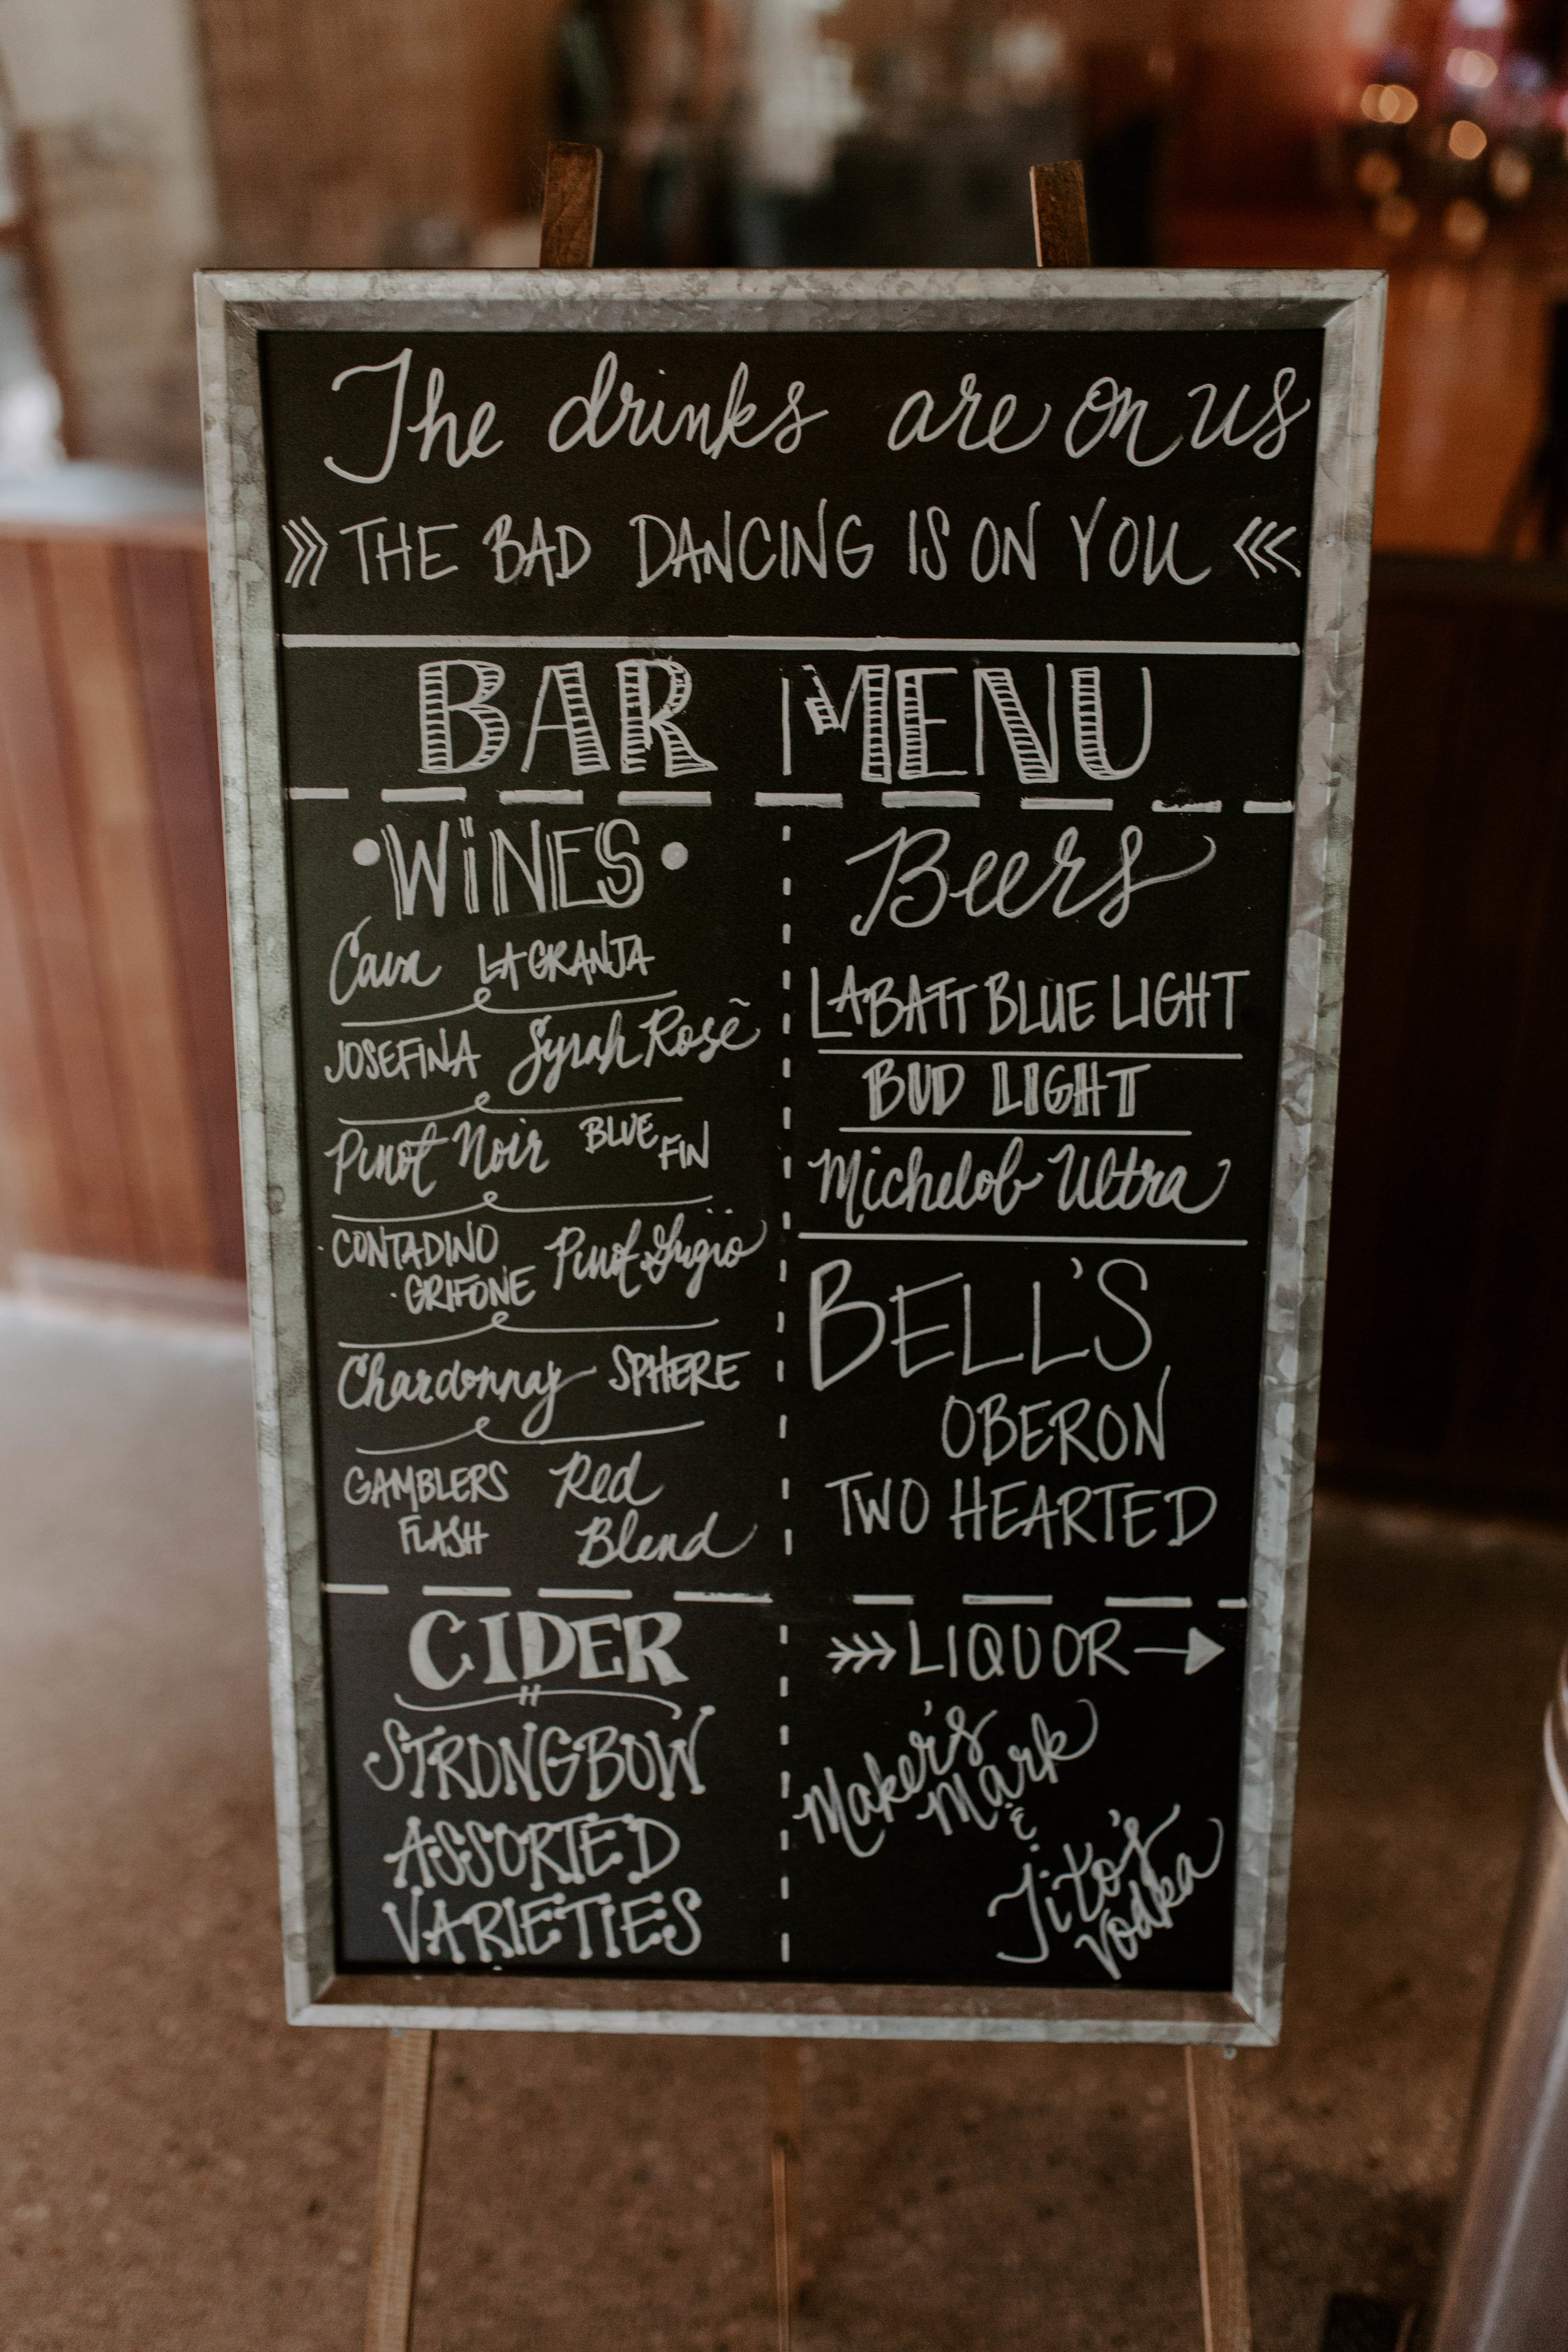 The drinks are on us
THE BAD DANCING IS ON YOU
BAR MENU
WINES
Cava LA GRANJA
JOSEFINA Syrah Rosé
Pinot Noir BLUE FIN
CONTADINO
GRIFONE Pinot Grigio
Chardonnay SPHERE
GAMBLERS Red
FLASH Blend
Beers
LABATT BLUE LIGHT
BUD LIGHT
Michelob Ultra
BELL'S
OBERON
TWO HEARTED
CIDER
STRONGBOW
ASSORTED
VARIETIES
LIQUOR
Maker's
Mark
&
Tito's
Vodka